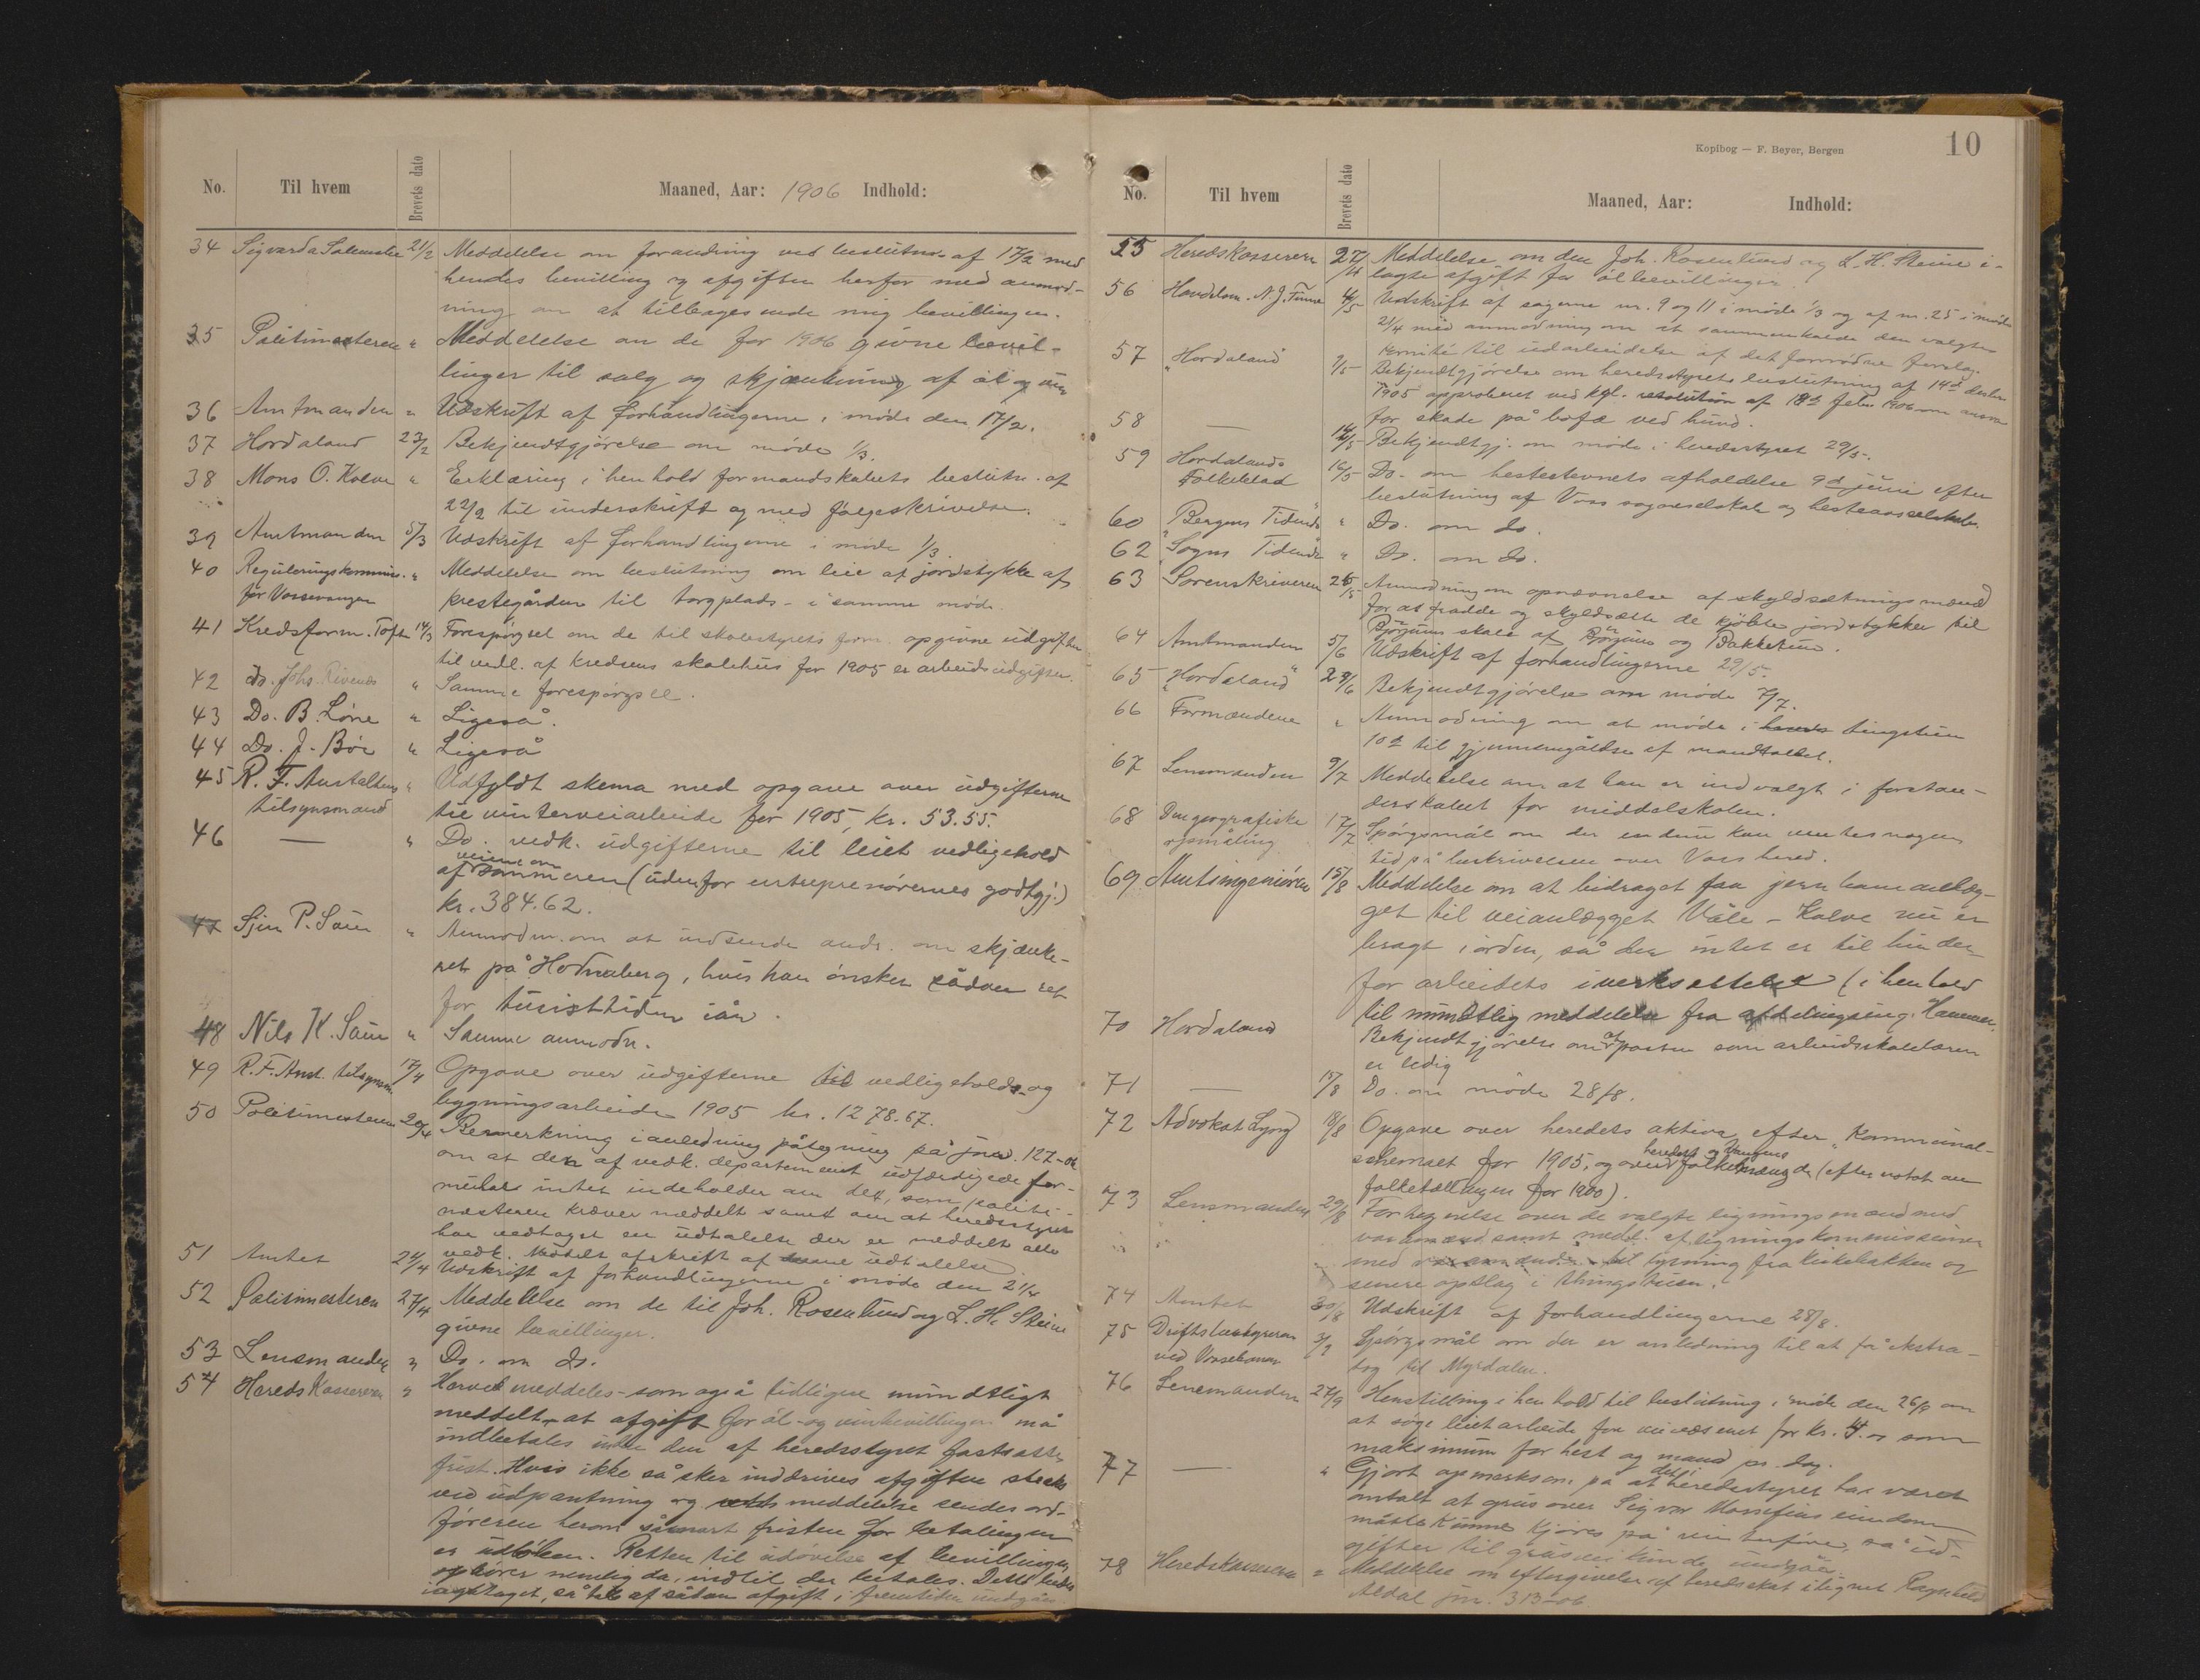 No. Til hvem Brevets dato Maaned, Aar: 1906 Indhold:
34 Sigvarda 21/2 Meddelelse om forandring ved beslutn. af 17/2 med
hendes bevilling og afgiften herfor med anmod-
ning om at tilbagesende mig bevillingen.
35 Politimesteren " Meddelelse om de for 1906 givne bevil-
linger til salg og skjænkning af øl og vin
36 Amtmanden " Udskrift af forhandlingerne i møde den 17/2.
37 Hordaland 23/2 Bekjendtgjørelse om møde 1/3.
38 Mons O. Kolve " Erklæring i henhold formandskabets beslutn. af
22/2 til underskrift og med følgeskrivelse.
39 Amtmanden 5/3 Udskrift af forhandlingerne i møde 1/3.
40 Reguleringskommis. " Meddelelse om beslutning om leie af jordstykke af
for Vossevangen prestegården til torgplads - i samme møde.
41 Kredsform. Toft 14/3 Forespørgsel om de til skolestyrets form. opgivne udgifter
til vedl. af kredsens skolehus for 1905 er arbeidsudgifter.
42 do. Johs. Rivenes " Samme forespørgsel.
43 Do. B. Løne " Ligeså.
44 Do. J. Bøe " Ligeså
45 R. F. Anstaltens " Udfyldt skema med opgave over udgifterne
tilsynsmand til vinterveiarbeide for 1905, kr. 53.55.
46 — " Do. vedk. udgifterne til leiet vedligehold
veiene om
af sommeren (udenfor entreprenørernes godtgj.)
kr. 384.62.
47 Sjur P. Saue " Anmodn. om at indsende andr. om skjænke-
ret på Hodnaberg, hvis han ønsker sådan ret
for turisttiden iår.
48 Nils K. Saue " Samme anmodn.
49 R. F. Anst. tilsynsm. 17/4 Opgave over udgifterne til vedligeholds- og
bygningsarbeide 1905 kr. 1278.67.
50 Politimesteren 20/4 Bemerkning i anledning påtegning på jour. 127-06
om at den af vedk. departement udfærdigede for-
mular intet indeholder om det, som politi-
mesteren kræver meddelt samt om at heredsstyret
har vedtaget en udtalelse der er meddelt alle
vedk. Meddelt afskrift af denne udtalelse
51 Amtet 24/4 Udskrift af forhandlingerne i møde den 21/4
52 Politimesteren 27/4 Meddelelse om de til Joh. Rosenlund og L. H. Steine
givne bevillinger.
53 Lensmanden " Do. om do.
54 Hereds Kassereren " Herved meddeles - som også tidligere mundtligt
meddelt - at afgift for øl- og vinbevillinger må
indbetales inden den af heredsstyret fastsatte
frist. Hvis ikke så sker inddrives afgiften straks
ved udpantning og meddelelse sendes ord-
føreren herom såsnart fristen for betalingen
er udløben. Retten til udøvelse af bevillingen
ophører nemlig da, indtil der betales. Dette bedes
iagttaget, så tab af sådan afgift i fremtiden undgåes.
Kopibog — F. Beyer, Bergen 10
No. Til hvem Brevets dato Maaned, Aar: Indhold:
55 Heredskasseren 27/4 Meddelelse om den Joh. Rosenlund og L. H. Steine i-
lagte afgift for ølbevillinger.
56 Handelsm. N. J. Finne 4/5 Udskrift af sagerne nr. 9 og 11 i møde 1/3 og af nr. 25 i møde
21/4 med anmodning om at sammenkalde den valgte
komité til udarbeidelse af det fornødne forslag.
57 "Hordaland" 9/5 Bekjendtgjørelse om heredsstyrets beslutning af 14de decbr.
1905 approberet ved kgl. resolution af 18de febr. 1906 om ansvar
for skade på bufæ ved hund.
58 — 14/5 Bekjendtgj. om møde i heredsstyret 29/5.
59 Hordalands 16/5 Do. om hestestevnets afholdelse 9de juni efter
Folkeblad beslutning af Voss sogneselskab og hesteavlselskabs
60 "Bergens Tidende" " Do. om do.
62 "Sogns Tidende" " Do. om do.
63 Sorenskriveren 26/5 Anmodning om opnævnelse af skyldsætningsmænd
for at fradele og skyldsætte de kjøbte jordstykker til
Bjørgum skole af Bjørgum og Bakketun.
64 Amtmanden 5/6 Udskrift af forhandlingerne 29/5.
65 "Hordaland" 29/6 Bekjendtgjørelse om møde 7/7.
66 Formændene " Anmodning om at møde i tingstuen
10de til gjennemgåelse af mandtallet.
67 Lensmanden 9/7 Meddelelse om at han er indvalgt i forstan-
derskabet for middelskolen.
68 Den geografiske 17/7 Spørgsmål om der endnu kan ventes nogen
opmåling tid på beskrivelsen over Voss hered.
69 Amtsingeniøren 15/8 Meddelelse om at bidraget fra jernbaneanlæg-
get til veianlægget Våle - Kolve nu er
bragt i orden, så der intet er til hinder
for arbeidets iverksettelse (i henhold
til mundtlig meddelelse fra afdelingsing. Hammer.
70 Hordaland Bekjendtgjørelse om at posten som arbeidsskolelærer
er ledig
71 — 15/8 Do. om møde 28/8.
72 Advokat Lyng 18/8 Opgave over heredets aktiva efter "Kommunal-
heredets og Vangens
schemaet for 1905, og over folkemængde (efter notat om
folketællingen for 1900).
73 Lensmanden 29/8 Fortegnelse over de valgte ligningsmænd med
varamænd samt medl. af ligningskommissionen
med varamænd til lysning fra kirkebakken og
senere opslag i thingstuen.
74 Amtet 30/8 Udskrift af forhandlingerne 28/8.
75 Driftsbestyreren 3/9 Spørgsmål om der er anledning til at få ekstra-
ved Vossebanen tog til Myrdalen.
76 Lensmanden 27/9 Henstilling i henhold til beslutning i møde den 26/9 om
at søge leiet arbeide for veivæsenet for kr. 4.00 som
maksimum for hest og mand pr. dag.
77 — " Gjort opmerksom på at det i heredsstyret har været
omtalt at grus over Sigvor eiendom
måtte kunne kjøres på vinterføre, så ud-
gifter til grusvei kunde undgåes.
78 Heredskasseren " Meddelelse om eftergivelse af heredsskat ilignet Ragnhild
Aldal jnr. 313-06